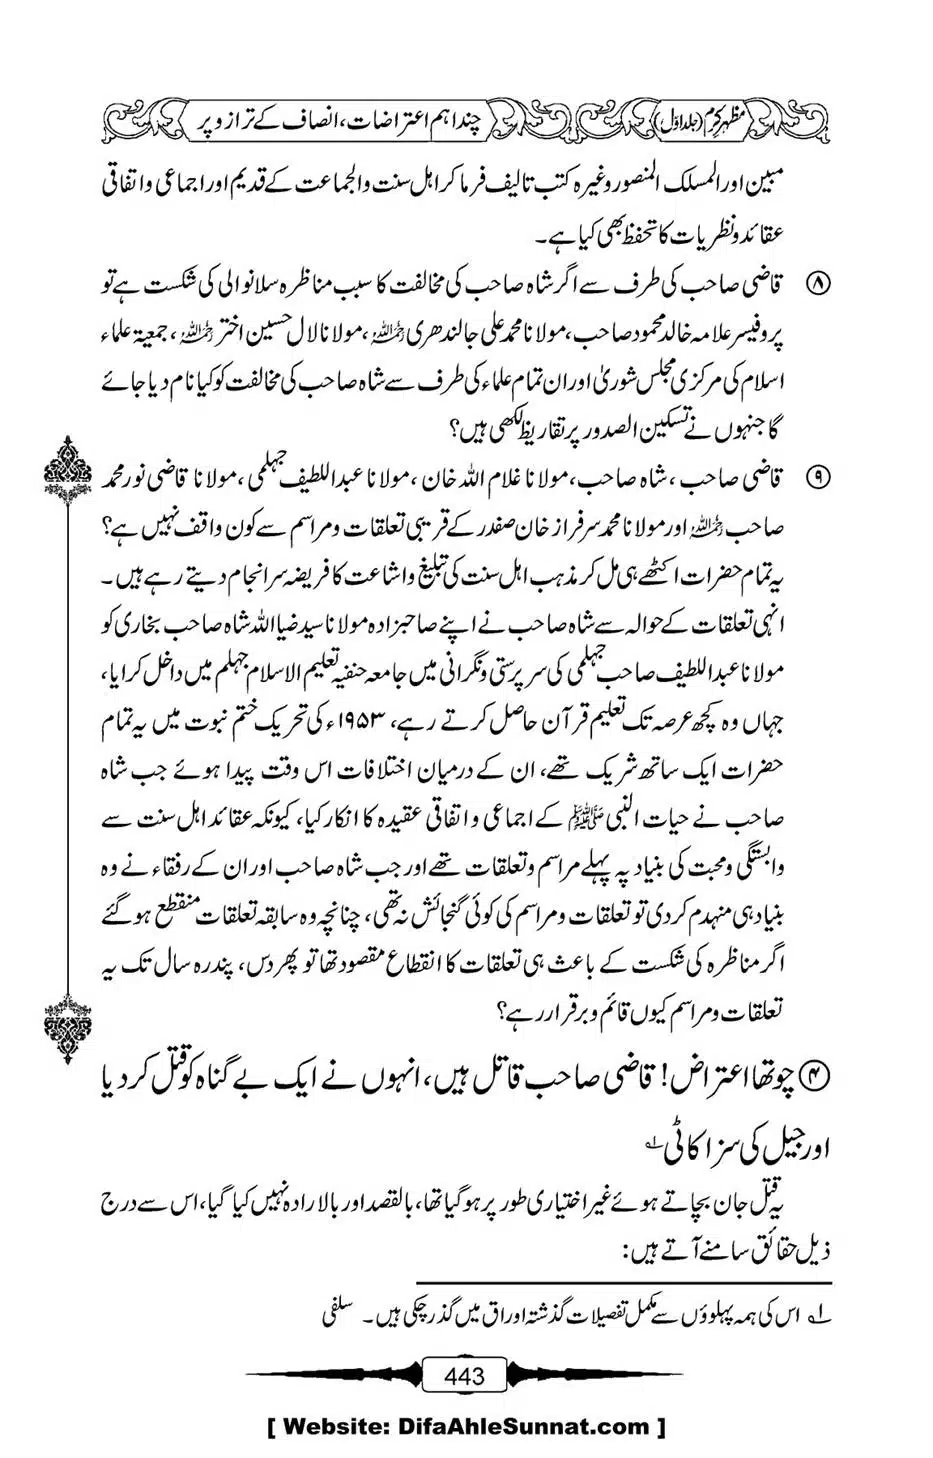 مظہرِ کرم (جلد اوّل)
چند اہم اعتراضات، انصاف کے ترازو پر
مبین اور المسلک المنصور وغیرہ کتب تالیف فرما کر اہل سنت والجماعت کے قدیم اور اجماعی و اتفاقی
عقائد و نظریات کا تحفظ بھی کیا ہے۔
⑧ قاضی صاحب کی طرف سے اگر شاہ صاحب کی مخالفت کا سبب مناظرہ سلانوالی کی شکست ہے تو
پروفیسر علامہ خالد محمود صاحب، مولانا محمد علی جالندھری رحمہ اللہ، مولانا لال حسین اختر رحمہ اللہ، جمعیۃ علماء
اسلام کی مرکزی مجلس شوریٰ اور ان تمام علماء کی طرف سے شاہ صاحب کی مخالفت کو کیا نام دیا جائے
گا جنہوں نے تسکین الصدور پر تقاریظ لکھی ہیں؟
⑨ قاضی صاحب، شاہ صاحب، مولانا غلام اللہ خان، مولانا عبداللطیف جہلمی، مولانا قاضی نور محمد
صاحب رحمہ اللہ اور مولانا محمد سرفراز خان صفدر کے قریبی تعلقات و مراسم سے کون واقف نہیں ہے؟
یہ تمام حضرات اکٹھے ہی مل کر مذہب اہل سنت کی تبلیغ و اشاعت کا فریضہ سرانجام دیتے رہے ہیں۔
انہی تعلقات کے حوالہ سے شاہ صاحب نے اپنے صاحبزادہ مولانا سید ضیا اللہ شاہ صاحب بخاری کو
مولانا عبداللطیف صاحب جہلمی کی سرپرستی و نگرانی میں جامعہ حنفیہ تعلیم الاسلام جہلم میں داخل کرایا،
جہاں وہ کچھ عرصہ تک تعلیم قرآن حاصل کرتے رہے، ۱۹۵۳ء کی تحریک ختم نبوت میں یہ تمام
حضرات ایک ساتھ شریک تھے، ان کے درمیان اختلافات اس وقت پیدا ہوئے جب شاہ
صاحب نے حیات النبی ﷺ کے اجماعی و اتفاقی عقیدہ کا انکار کیا، کیونکہ عقائد اہل سنت سے
وابستگی و محبت کی بنیاد پہ پہلے مراسم و تعلقات تھے اور جب شاہ صاحب اور ان کے رفقاء نے وہ
بنیاد ہی منہدم کر دی تو تعلقات و مراسم کی کوئی گنجائش نہ تھی، چنانچہ وہ سابقہ تعلقات منقطع ہو گئے
اگر مناظرہ کی شکست کے باعث ہی تعلقات کا انقطاع مقصود تھا تو پھر دس، پندرہ سال تک یہ
تعلقات و مراسم کیوں قائم و برقرار رہے؟
④ چوتھا اعتراض! قاضی صاحب قاتل ہیں، انہوں نے ایک بے گناہ کو قتل کر دیا
اور جیل کی سزا کاٹی؎۱
یہ قتل جان بچاتے ہوئے غیر اختیاری طور پر ہو گیا تھا، بالقصد اور بالارادہ نہیں کیا گیا، اس سے درج
ذیل حقائق سامنے آتے ہیں:
؎۱ اس کی ہمہ پہلوؤں سے مکمل تفصیلات گذشتہ اوراق میں گذر چکی ہیں۔ سلفی
443
[ Website: DifaAhleSunnat.com ]